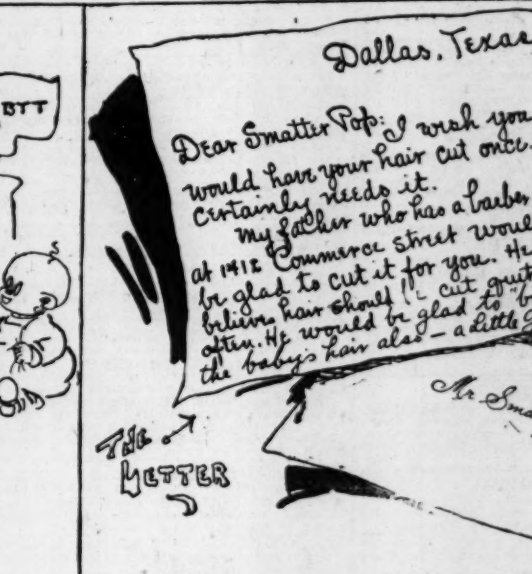 BTT
Dallas, Texas
Dear Smatter Pop: I wish you
would have your hair cut once.
Certainly needs it.
My father who has a barber
at 1412 Commerce street woul
be glad to cut it for you. He
believes hair should be cut quite
often. He would be glad to "b
the baby's hair also - a little
Mr. Sma
THE
LETTER